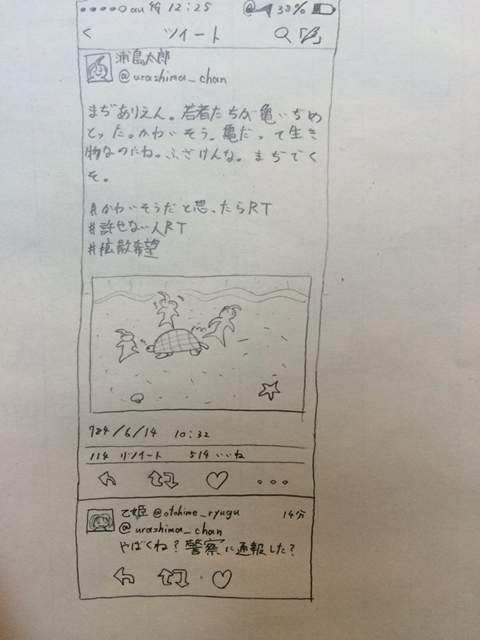 au 12:25 @ 38%
< ツイート
浦島太郎
@urashima_chan
まぢありえん。若者たちが亀いぢめ
とった。かわいそう。亀だって生き
物なのにね。ふざけんな。まぢでく
そ。
#かわいそうだと思ったらRT
#許せない人RT
#拡散希望
724/6/14 10:32
114 リツイート 514 いいね
乙姫 @otohime_ryugu 14分
@urashima_chan
やばくね?警察に通報した?